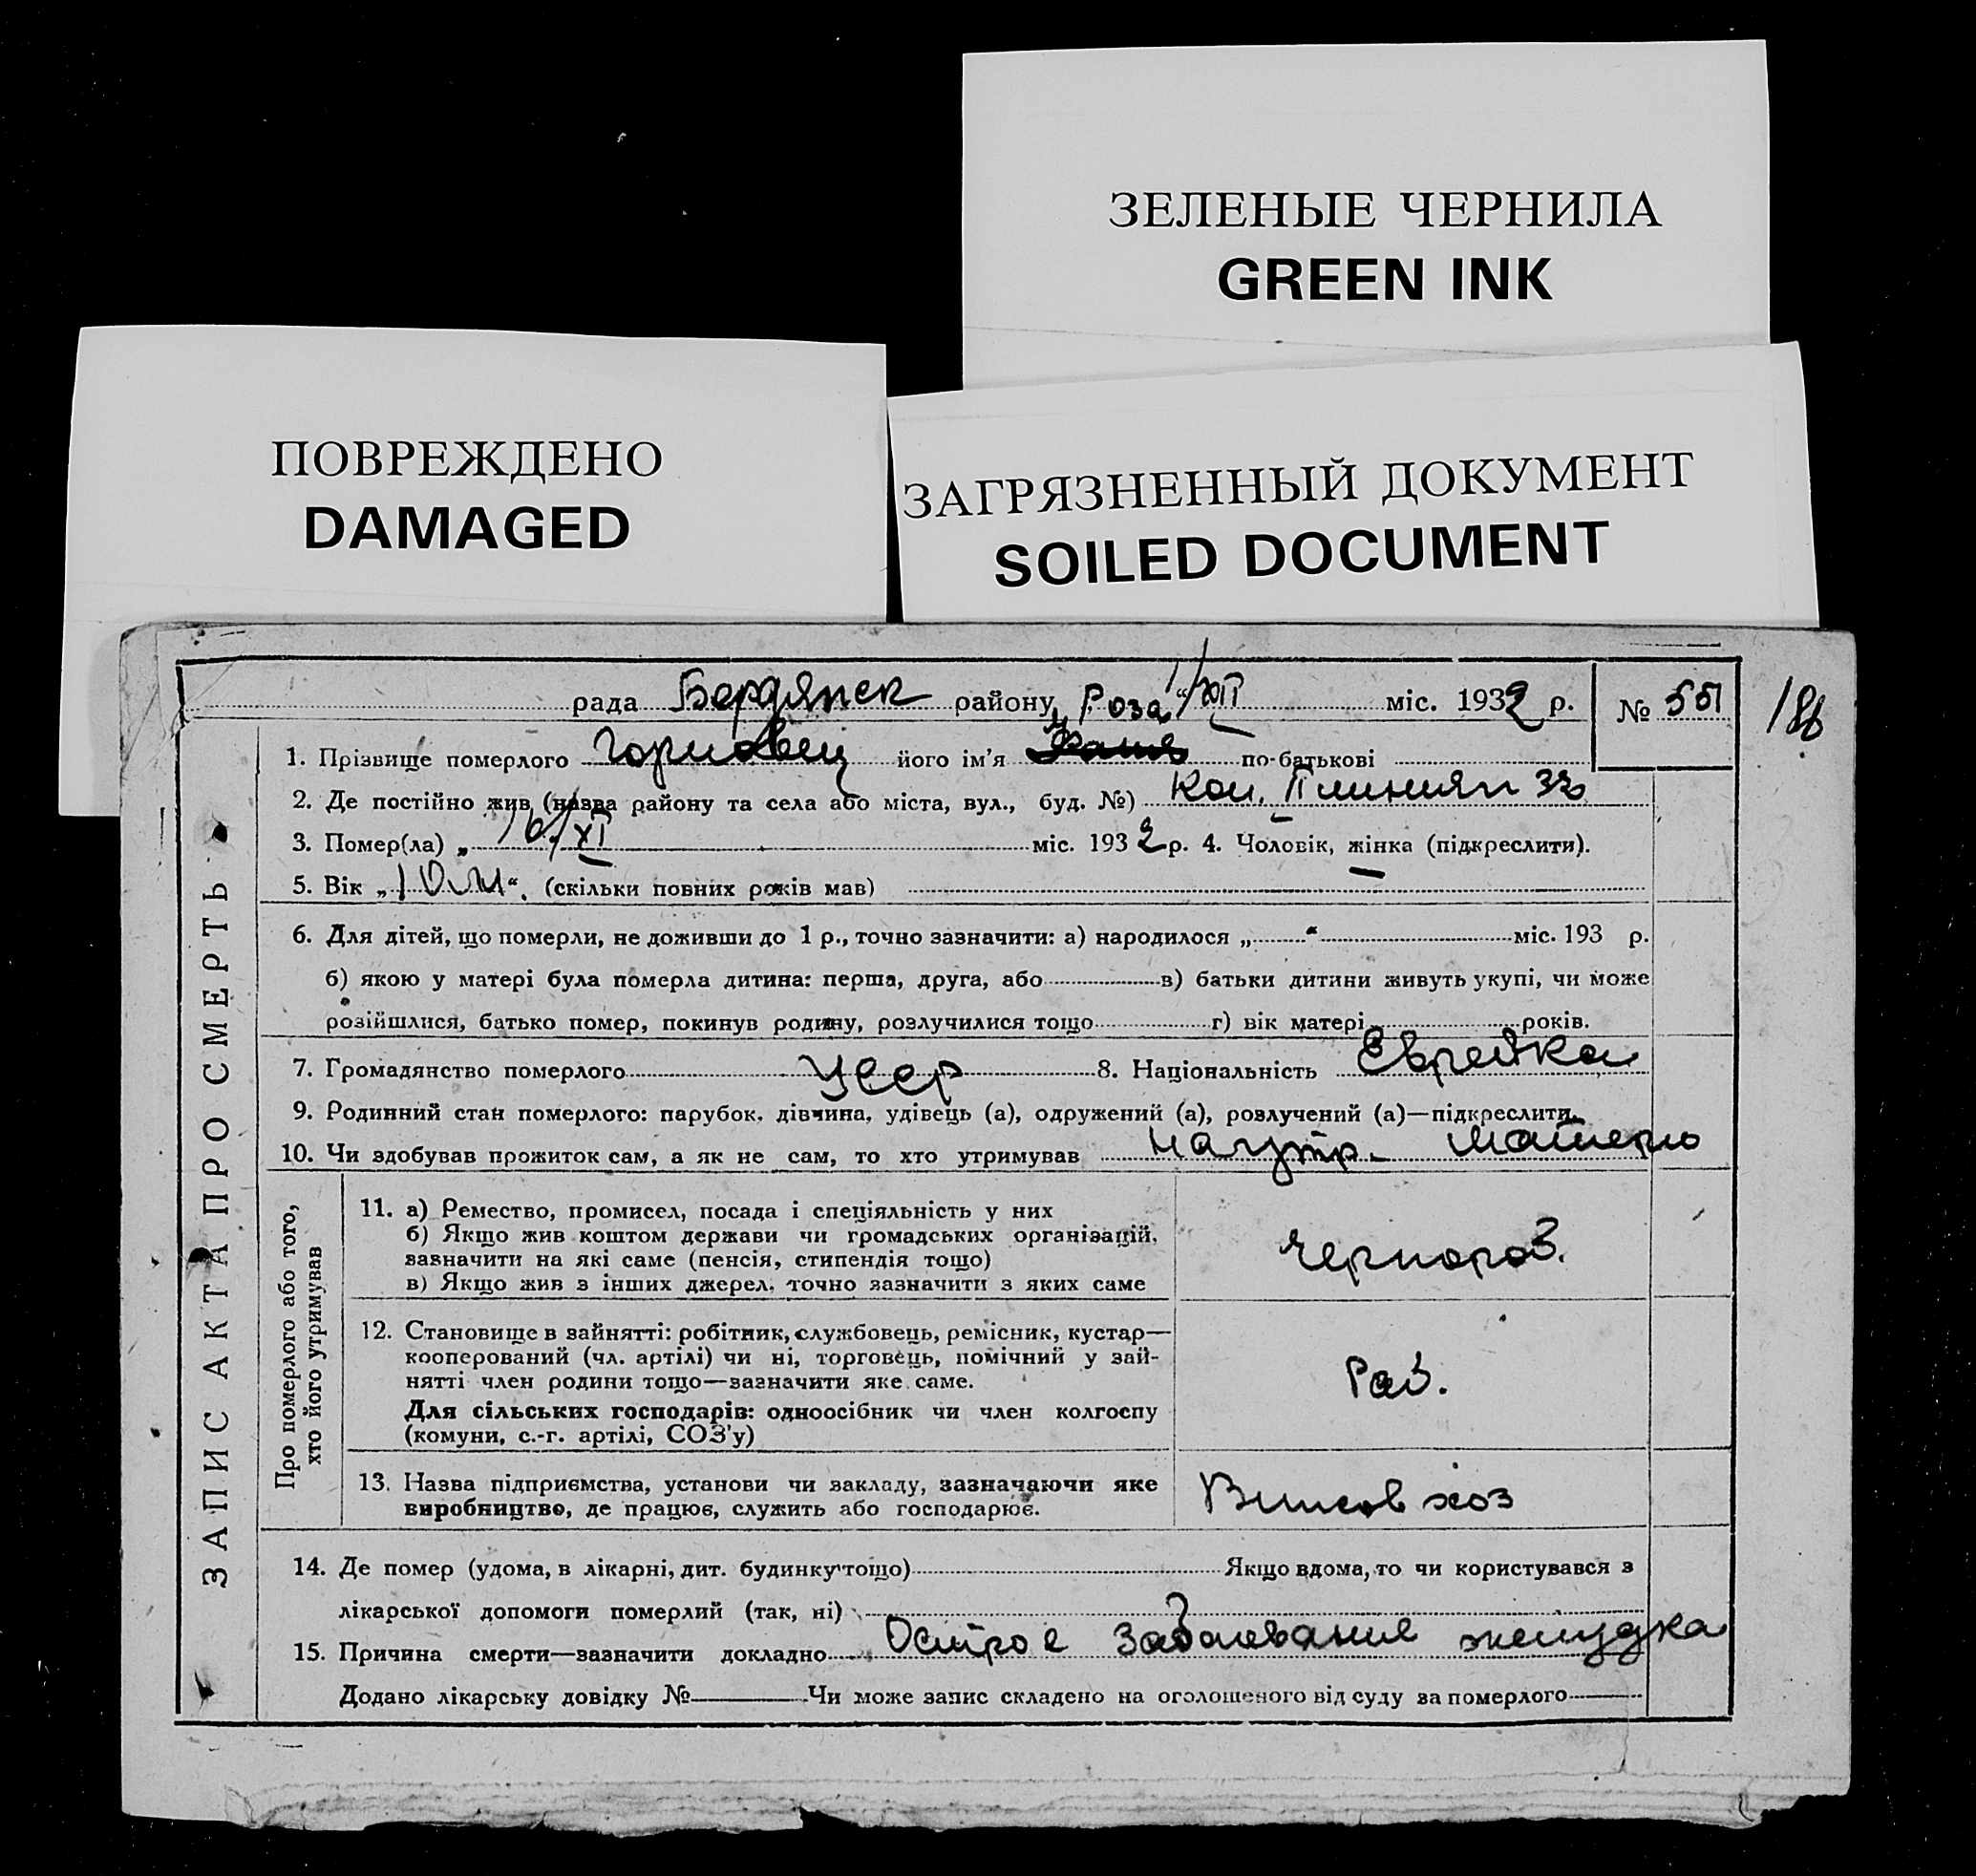 ЗЕЛЕНЫЕ ЧЕРНИЛА
GREEN INK
ПОВРЕЖДЕНО
DAMAGED
ЗАГРЯЗНЕННЫЙ ДОКУМЕНТ
SOILED DOCUMENT
рада Бердянск району "1/XII міс. 1932 р. № 551
186
Роза
1. Прізвище померлого його ім'я по-батькові
2. Де постійно жив (назва району та села або міста, вул., буд. №) Кол. II линия 33
3. Помер(ла) „ 16/XI міс. 1932 р. 4. Чоловік, жінка (підкреслити).
5. Вік „10 м“. (скільки повних років мав)
6. Для дітей, що померли, не доживши до 1 р., точно зазначити: а) народилося „ “ міс. 193 р.
б) якою у матері була померла дитина: перша, друга, або в) батьки дитини живуть укупі, чи може
розійшлися, батько помер, покинув родину, розлучилися тощо г) вік матері років.
7. Громадянство померлого УССР 8. Національність Еврейка
9. Родинний стан померлого: парубок, дівчина, удівець (а), одружений (а), розлучений (а)—підкреслити.
10. Чи здобував прожиток сам, а як не сам, то хто утримував на утр. матерью
ЗАПИС АКТА ПРО СМЕРТЬ
Про померлого або того, хто його утримував
11. а) Ремество, промисел, посада і спеціяльність у них
б) Якщо жив коштом держави чи громадських організацій,
зазначити на які саме (пенсія, стипендія тощо)
в) Якщо жив з інших джерел, точно зазначити з яких саме
Чернораб.
12. Становище в зайнятті: робітник, службовець, ремісник, кустар—
кооперований (чл. артілі) чи ні, торговець, помічний у зай-
нятті член родини тощо—зазначити яке саме.
Для сільських господарів: одноосібник чи член колгоспу
(комуни, с.-г. артілі, СОЗ'у)
Раб.
13. Назва підприємства, установи чи закладу, зазначаючи яке
виробництво, де працює, служить або господарює.
Винсовхоз
14. Де помер (удома, в лікарні, дит. будинку тощо) Якщо вдома, то чи користувався з
лікарської допомоги померлий (так, ні)
15. Причина смерти—зазначити докладно Острое заболевание желудка
Додано лікарську довідку № Чи може запис складено на оголошеного від суду за померлого